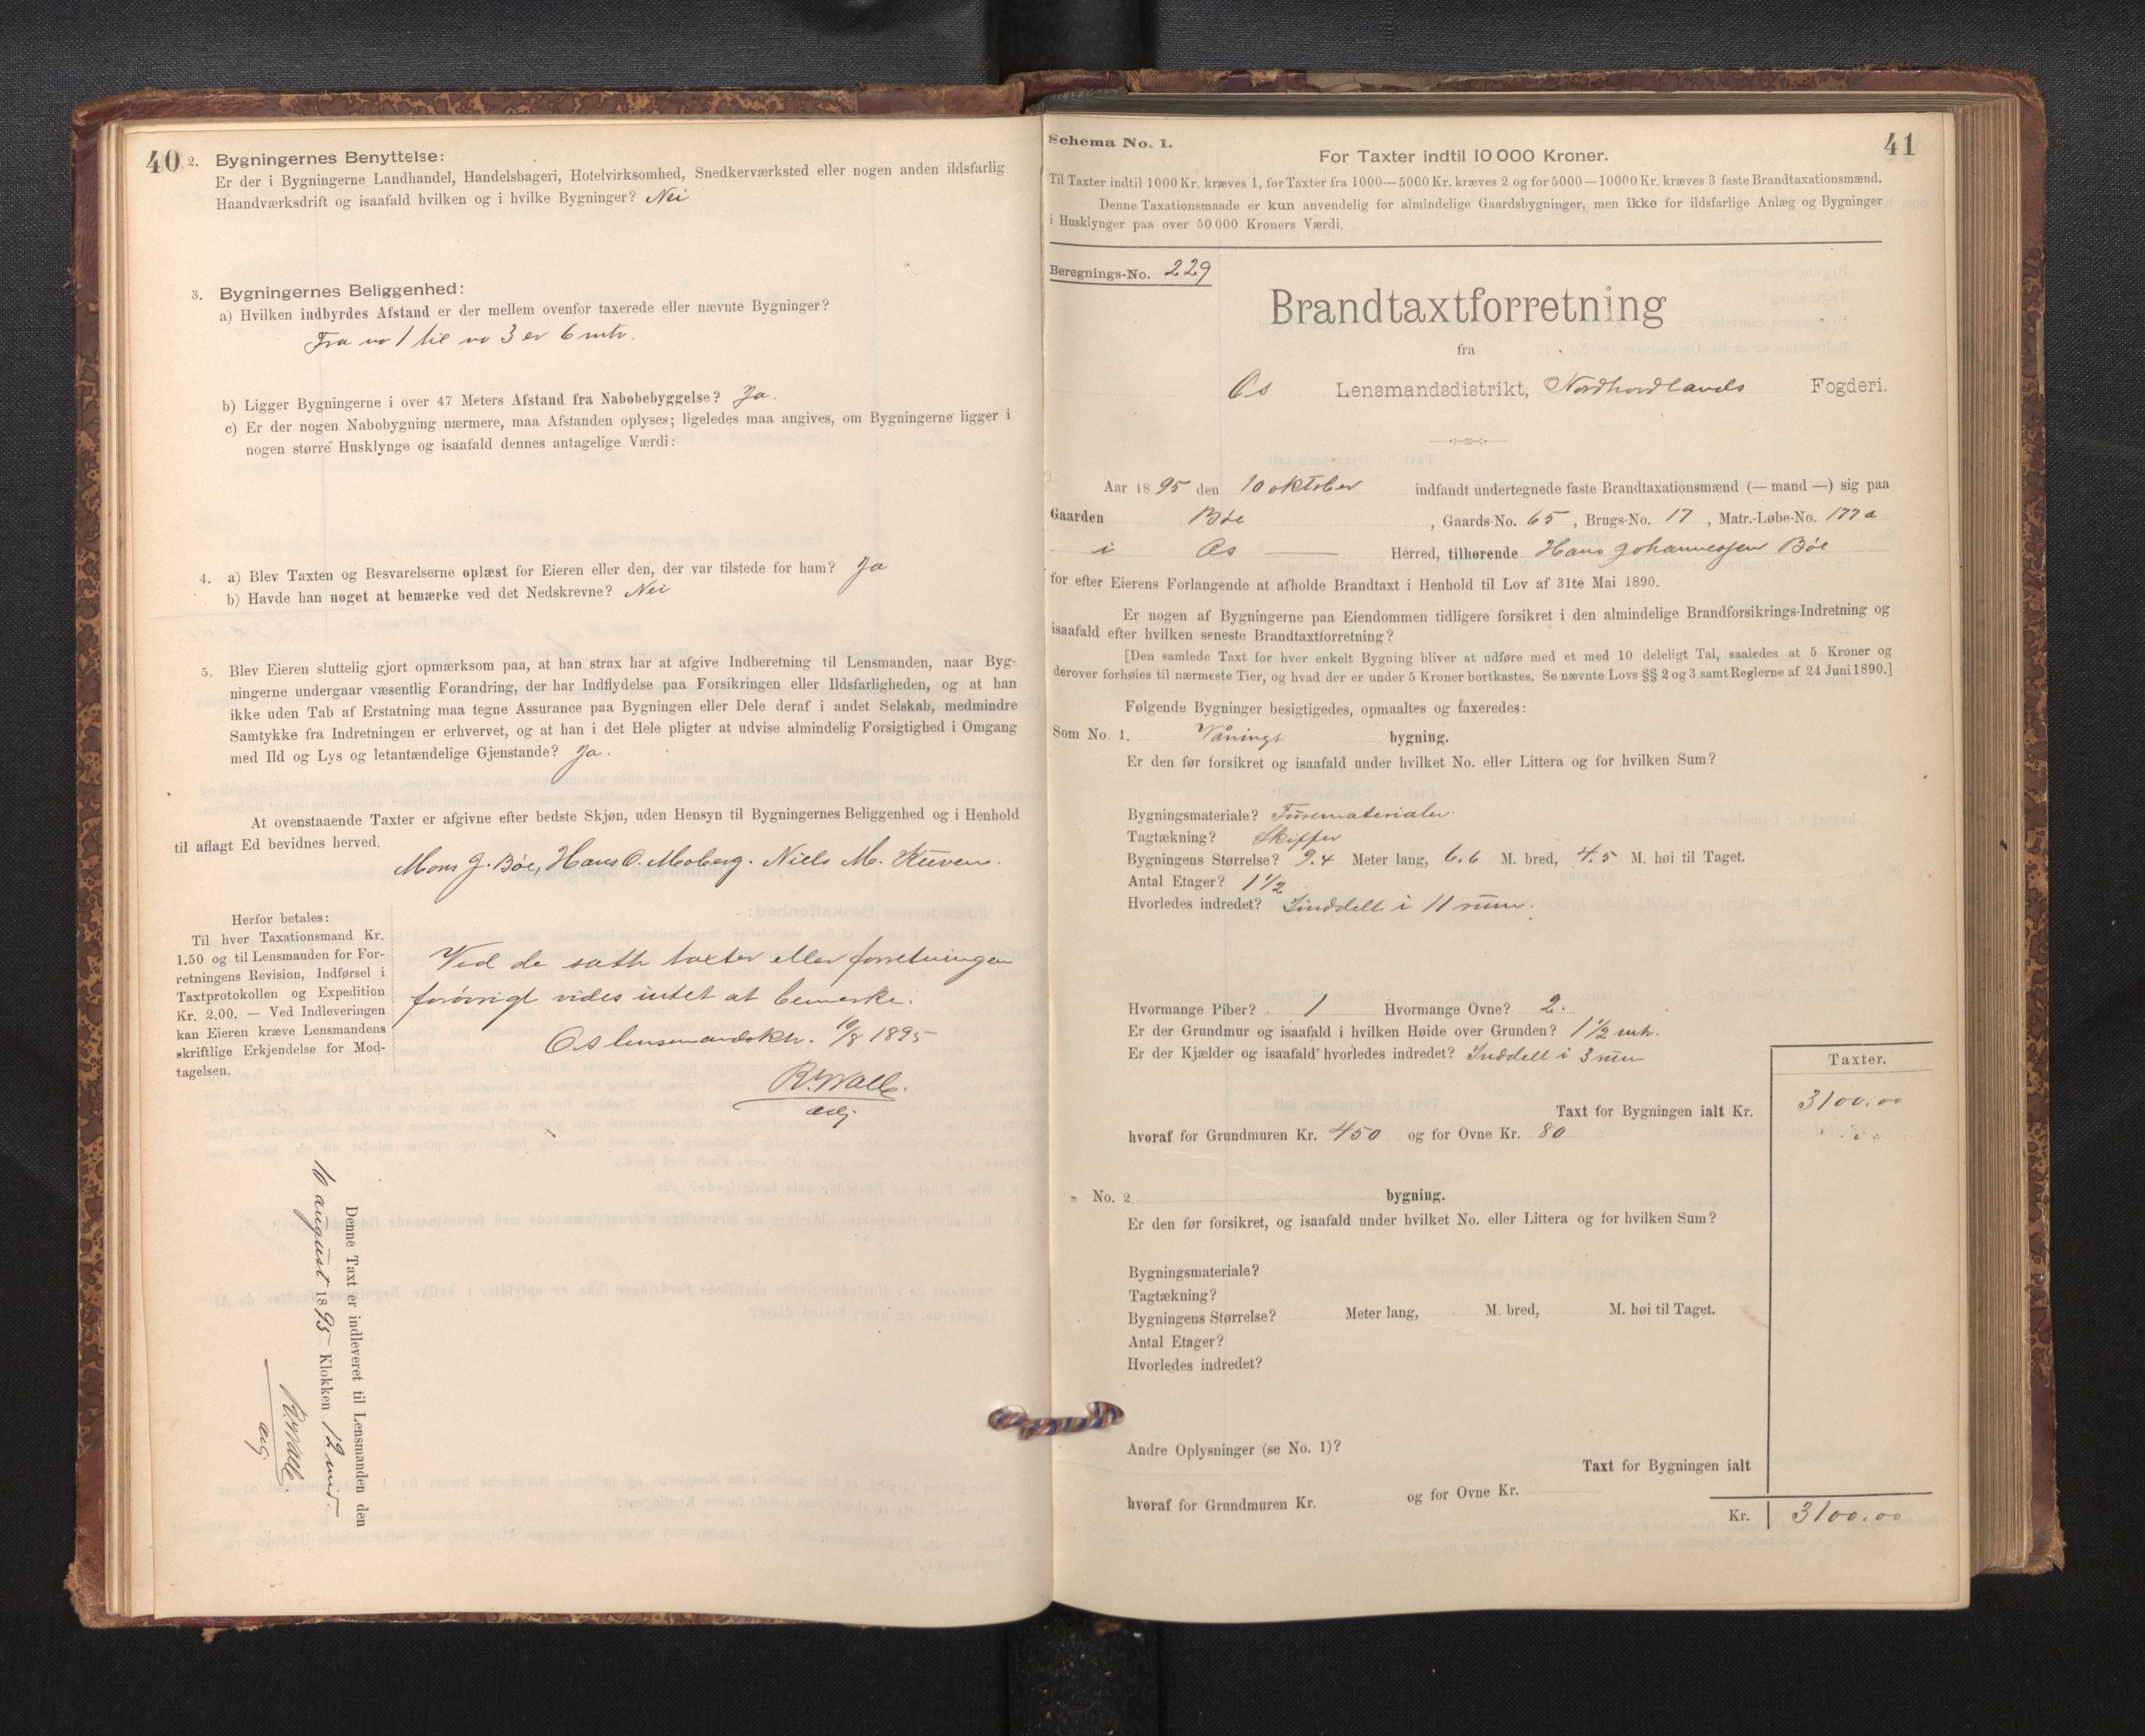 40
2. Bygningernes Benyttelse:
Er der i Bygningerne Landhandel, Handelsbageri, Hotelvirksomhed, Snedkerværksted eller nogen anden ildsfarlig
Haandværksdrift og isaafald hvilken og i hvilke Bygninger? Nei
3. Bygningernes Beliggenhed:
a) Hvilken indbyrdes Afstand er der mellem ovenfor taxerede eller nævnte Bygninger?
Fra no 1 til no 3 er 6 mtr.
b) Ligger Bygningerne i over 47 Meters Afstand fra Nabobebyggelse? Ja.
c) Er der nogen Nabobygning nærmere, maa Afstanden oplyses; ligeledes maa angives, om Bygningerne ligger i
nogen større Husklynge og isaafald dennes antagelige Værdi:
4. a) Blev Taxten og Besvarelserne oplæst for Eieren eller den, der var tilstede for ham? Ja
b) Havde han noget at bemærke ved det Nedskrevne? Nei
5. Blev Eieren sluttelig gjort opmærksom paa, at han strax har at afgive Indberetning til Lensmanden, naar Byg-
ningerne undergaar væsentlig Forandring, der har Indflydelse paa Forsikringen eller Ildsfarligheden, og at han
ikke uden Tab af Erstatning maa tegne Assurance paa Bygningen eller Dele deraf i andet Selskab, medmindre
Samtykke fra Indretningen er erhvervet, og at han i det Hele pligter at udvise almindelig Forsigtighed i Omgang
med Ild og Lys og letantændelige Gjenstande? Ja.
At ovenstaaende Taxter er afgivne efter bedste Skjøn, uden Hensyn til Bygningernes Beliggenhed og i Henhold
til aflagt Ed bevidnes herved.
Mons J. Bøe, Hans O. Moberg. Niels M. Kuven.
Herfor betales:
Til hver Taxationsmand Kr.
1.50 og til Lensmanden for For-
retningens Revision, Indførsel i
Taxtprotokollen og Expedition
Kr. 2.00. — Ved Indleveringen
kan Eieren kræve Lensmandens
skriftlige Erkjendelse for Mod-
tagelsen.
Ved de satte taxter eller forretningen
forøvrigt vides intet at bemerke.
Os lensmandsktr. 10/8 1895
R. Wall
adj
Denne Taxt er indleveret til Lensmanden den
10 august 1895 Klokken 12 mid.
R. Wall
adj.
41
Schema No. 1.
For Taxter indtil 10 000 Kroner.
Til Taxter indtil 1000 Kr. kræves 1, for Taxter fra 1000—5000 Kr. kræves 2 og for 5000—10000 Kr. kræves 3 faste Brandtaxationsmænd.
Denne Taxationsmaade er kun anvendelig for almindelige Gaardsbygninger, men ikke for ildsfarlige Anlæg og Bygninger
i Husklynger paa over 50 000 Kroners Værdi.
Beregnings-No. 229
Brandtaxtforretning
fra
Os Lensmandsdistrikt, Nordhordlands Fogderi.
Aar 1895 den 10 oktober indfandt undertegnede faste Brandtaxationsmænd (— mand —) sig paa
Gaarden Bøe, Gaards-No. 65, Brugs-No. 17, Matr.-Løbe-No. 177 a
i Os Herred, tilhørende Hans Johannessen Bøe
for efter Eierens Forlangende at afholde Brandtaxt i Henhold til Lov af 31te Mai 1890.
Er nogen af Bygningerne paa Eiendommen tidligere forsikret i den almindelige Brandforsikrings-Indretning og
isaafald efter hvilken seneste Brandtaxtforretning?
[Den samlede Taxt for hver enkelt Bygning bliver at udføre med et med 10 deleligt Tal, saaledes at 5 Kroner og
derover forhøies til nærmeste Tier, og hvad der er under 5 Kroner bortkastes. Se nævnte Lovs §§ 2 og 3 samt Reglerne af 24 Juni 1890.]
Følgende Bygninger besigtigedes, opmaaltes og taxeredes:
Som No. 1. Vånings bygning.
Er den før forsikret og isaafald under hvilket No. eller Littera og for hvilken Sum?
Bygningsmateriale? Furematerialer.
Tagtækning? Skiffer
Bygningens Størrelse? 9.4 Meter lang, 6.6 M. bred, 4.5 M. høi til Taget.
Antal Etager? 1 1/2
Hvorledes indredet? Inddelt i 11 rum.
Hvormange Piber? 1 Hvormange Ovne? 2.
Er der Grundmur og isaafald i hvilken Høide over Grunden? 1 1/2 mtr.
Er der Kjælder og isaafald hvorledes indredet? Inddelt i 3 rum
Taxter.
Taxt for Bygningen ialt Kr. 3100.00
hvoraf for Grundmuren Kr. 450 og for Ovne Kr. 80
„ No. 2 bygning.
Er den før forsikret, og isaafald under hvilket No. eller Littera og for hvilken Sum?
Bygningsmateriale?
Tagtækning?
Bygningens Størrelse? Meter lang, M. bred, M. høi til Taget.
Antal Etager?
Hvorledes indredet?
Andre Oplysninger (se No. 1)?
Taxt for Bygningen ialt
hvoraf for Grundmuren Kr. og for Ovne Kr.
Kr. 3100.00